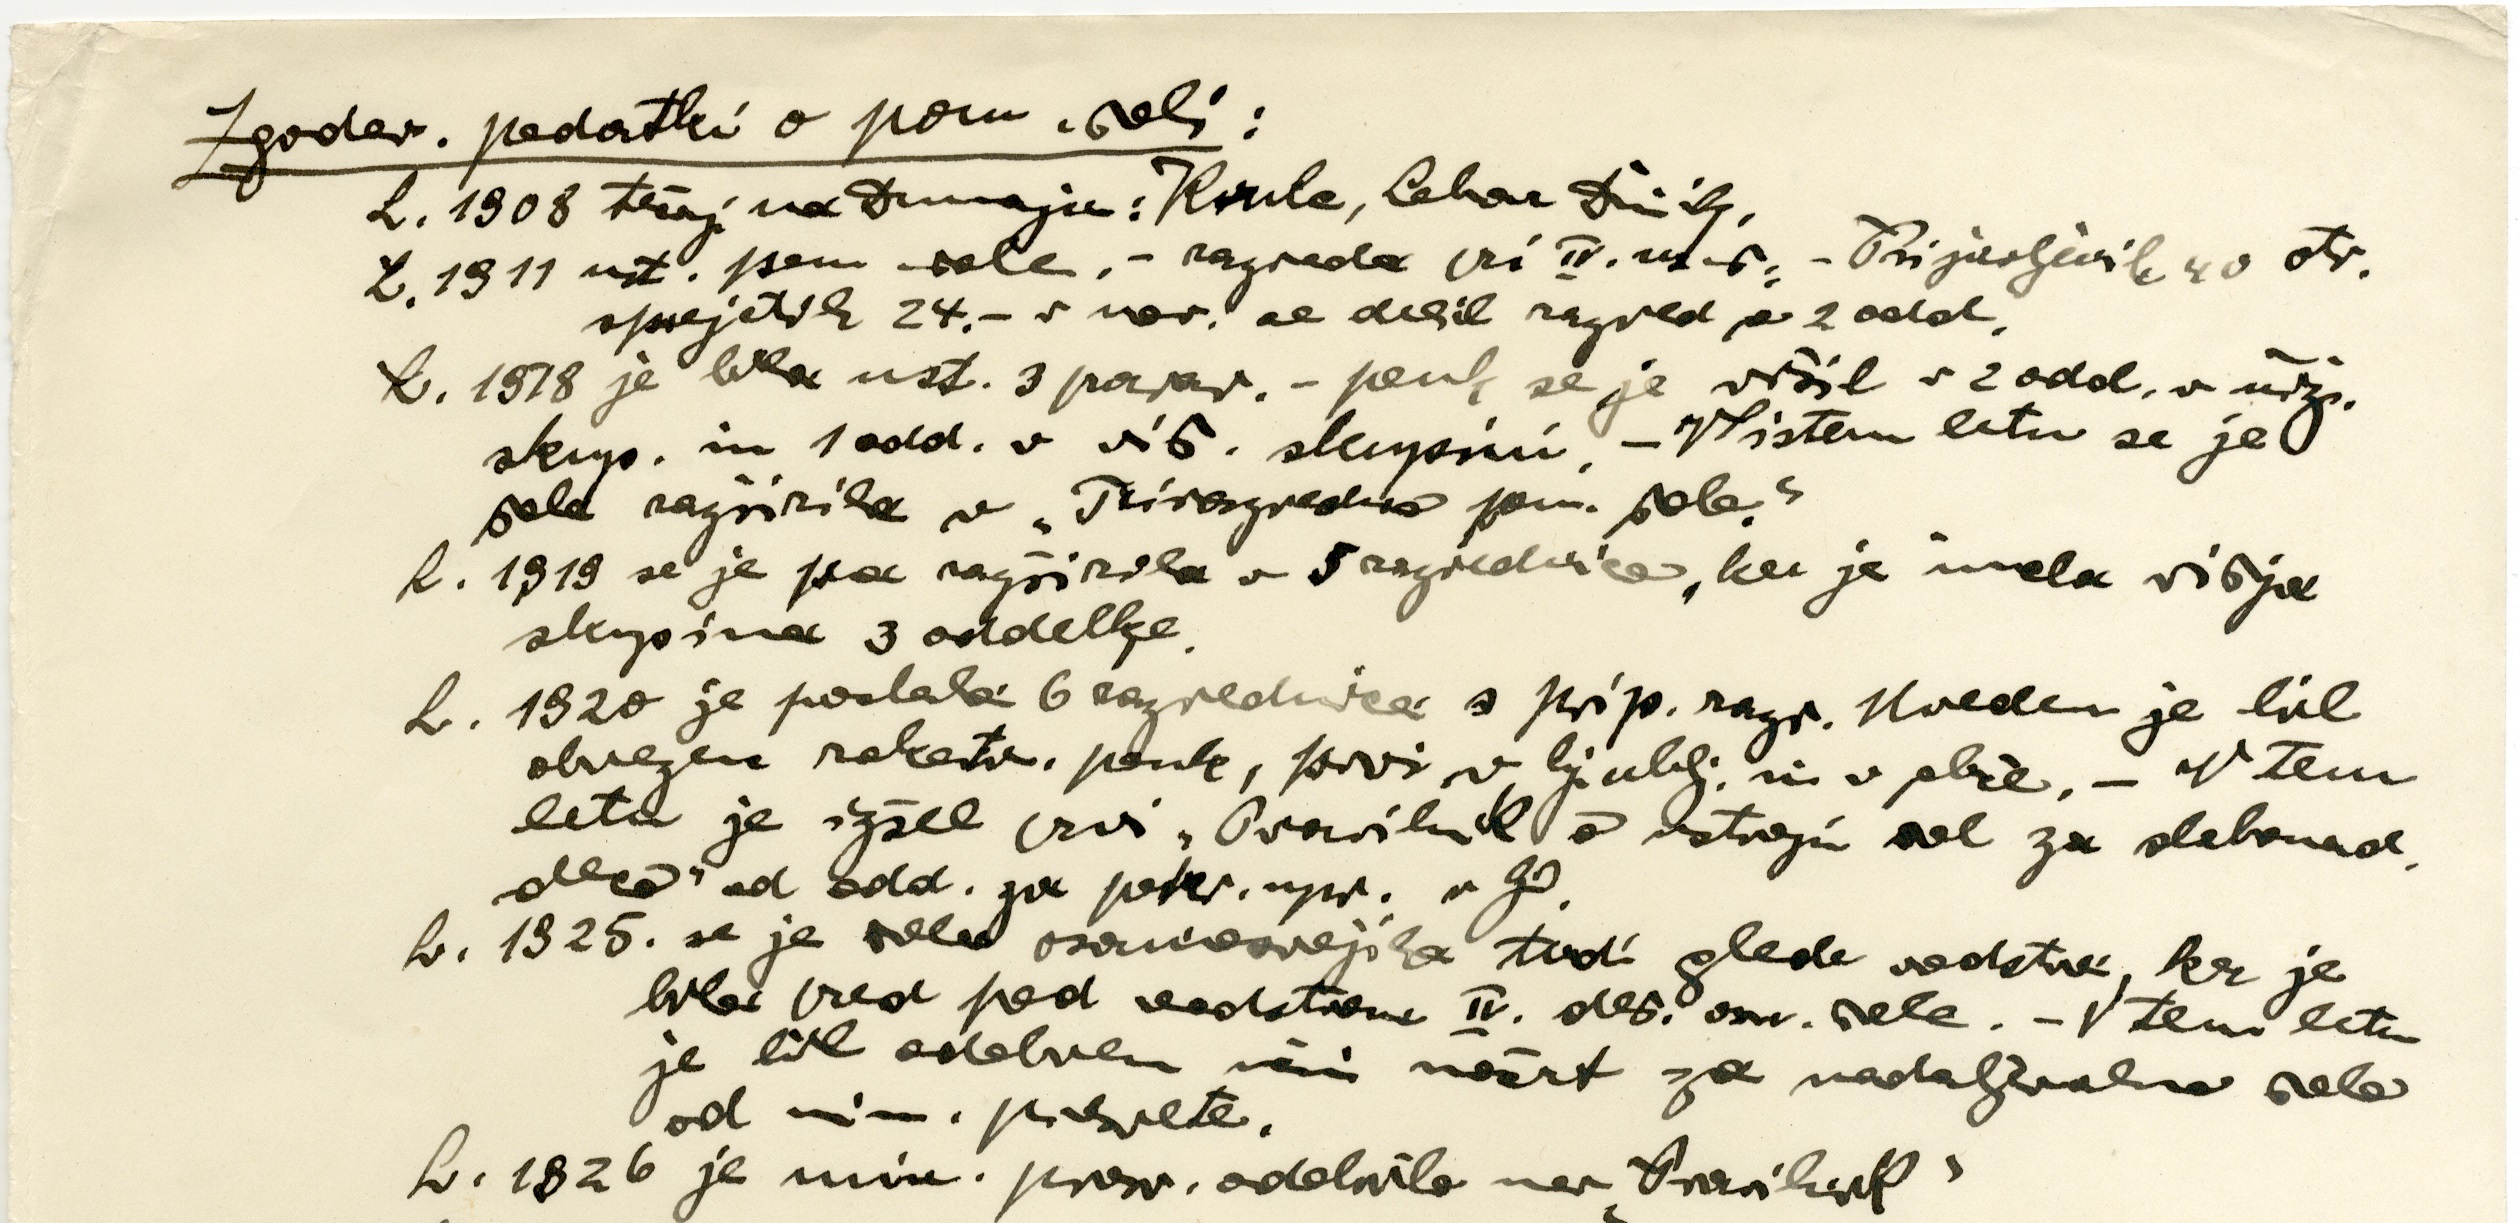 Zgodov. podatki o pom. šoli:
L. 1908 tečaj na Dunaju: Kunc, Lebar
L. 1911 ust. pom. šole, – razreda pri II. m. š. – Prijavljenih 40 otr.
sprejetih 24. – v nov. se delil razred v 2 odd.
L. 1918 je bila ust. 3 parav. – pouk se je vršil v 2 odd. v niž.
skup. in 1 odd. v viš. skupini. – V istem letu se je
šola razširila v „Trirazredno pom. šolo."
L. 1919 se je pa razširila v 5 razrednico, ker je imela višja
skupina 3 oddelke.
L. 1920 je postala 6 razrednica s prip. razr. Uveden je bil
obvezen rokotv. pouk, prvi v Ljublj. in v obče. – V tem
letu je izšel prvi „Pravilnik o ustroju šol za slabonad.
deco" od odd. za pokr. upr. v Lj.
L. 1925. se je šola osamosvojila tudi glede vodstva, ker je
bila pred pod vodstvom II. deš. osn. šole. – V tem letu
je bil odobren učni načrt za nadaljevalno šolo
od min. prosvete.
L. 1926 je min. prosv. odobrilo nov „Pravilnik"